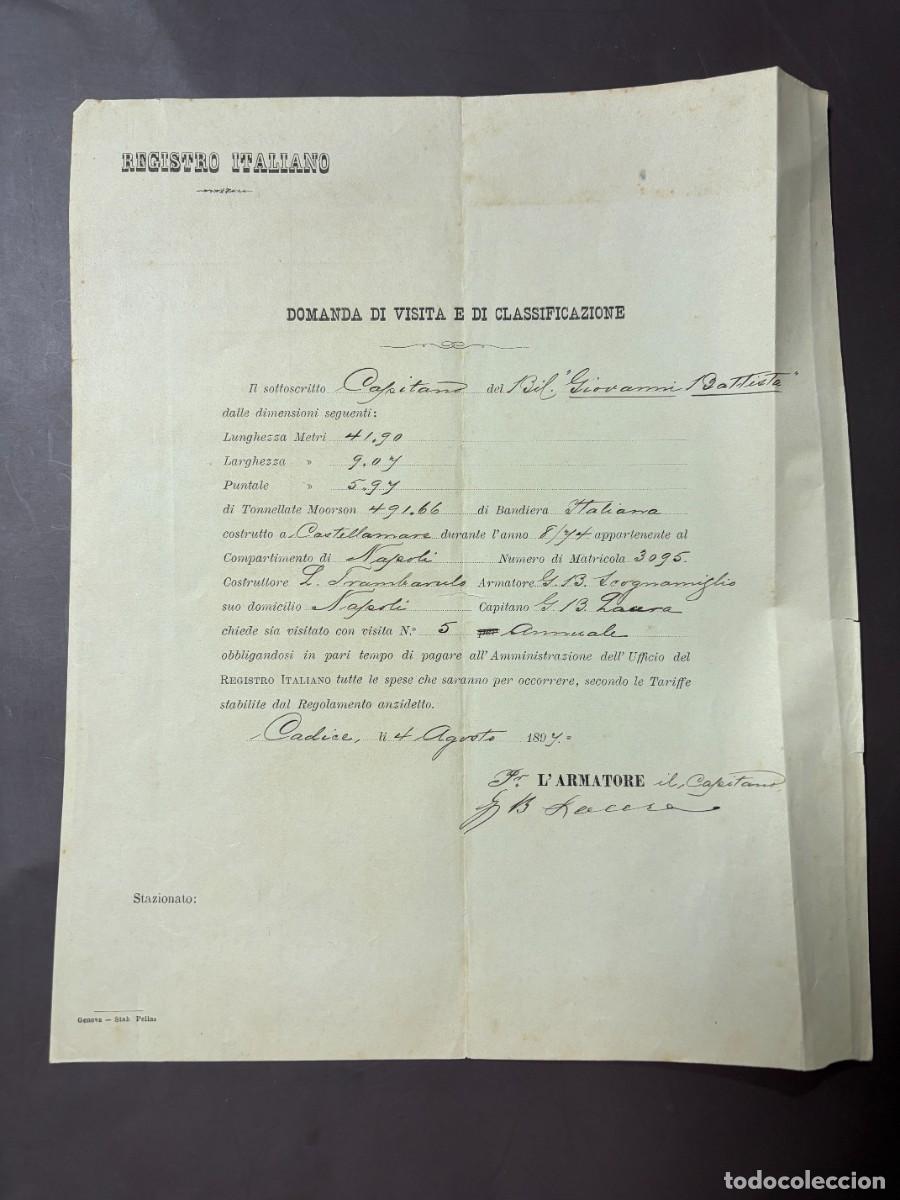 REGISTRO ITALIANO
DOMANDA DI VISITA E DI CLASSIFICAZIONE
Il sottoscritto Capitano del Bil. "Giovanni Battista"
dalle dimensioni seguenti:
Lunghezza Metri 41.90
Larghezza » 9.07
Puntale » 5.97
di Tonnellate Moorson 491.66 di Bandiera Italiana
costrutto a Castellamare durante l'anno 8/74 appartenente al
Compartimento di Napoli Numero di Matricola 3095.
Costruttore L. Armatore G. B. Scognamiglio
suo domicilio Napoli Capitano G. B. Laura
chiede sia visitato con visita N.º 5 Annuale
obbligandosi in pari tempo di pagare all'Amministrazione dell'Ufficio del
REGISTRO ITALIANO tutte le spese che saranno per occorrere, secondo le Tariffe
stabilite dal Regolamento anzidetto.
Cadice, li 4 Agosto 1897.=
Pr. L'ARMATORE il Capitano
G B
Stazionato:
Genova — Stab. Pellas
todocoleccion